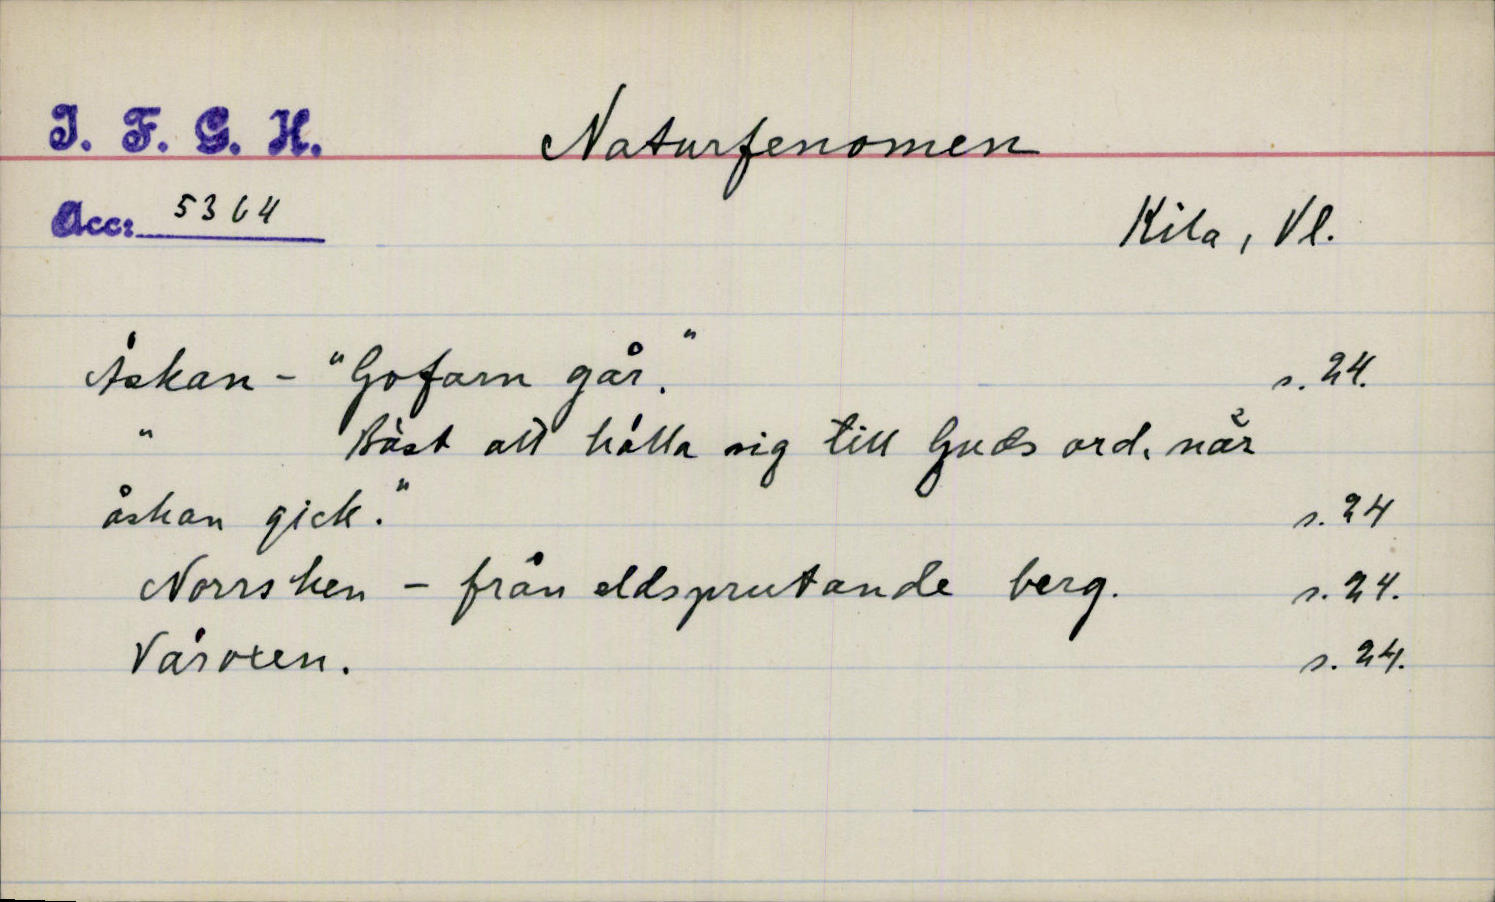 I. F. G. H.
Naturfenomen
Acc: 5364
Kila, Vl.
Åskan - "Gofarn går." s. 24.
" Bäst att hålla sig till Guds ord, när
åskan gick." s. 24
Norrsken - från eldsprutande berg. s. 24.
Våroxen. s. 24.